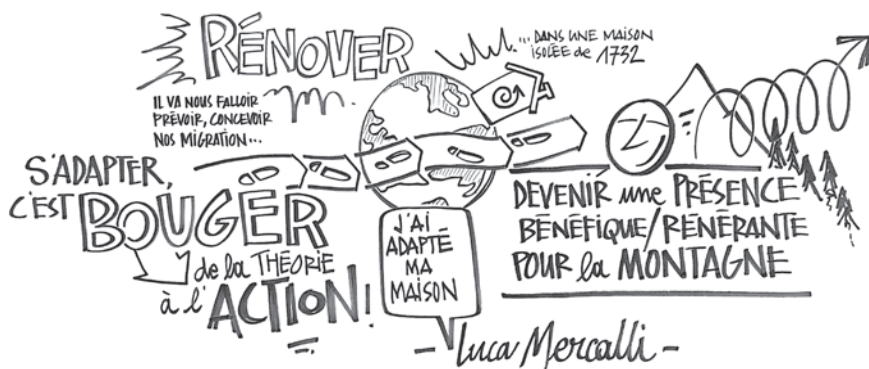 RÉNOVER
... DANS UNE MAISON
ISOLÉE de 1732
IL VA NOUS FALLOIR
PRÉVOIR, CONCEVOIR
NOS MIGRATION...
S'ADAPTER,
C'EST BOUGER
de la THÉORIE
à l'ACTION!
J'AI
ADAPTÉ
MA
MAISON
DEVENIR une PRÉSENCE
BÉNÉFIQUE/RÉNÉRANTE
POUR la MONTAGNE
- Luca Mercalli -